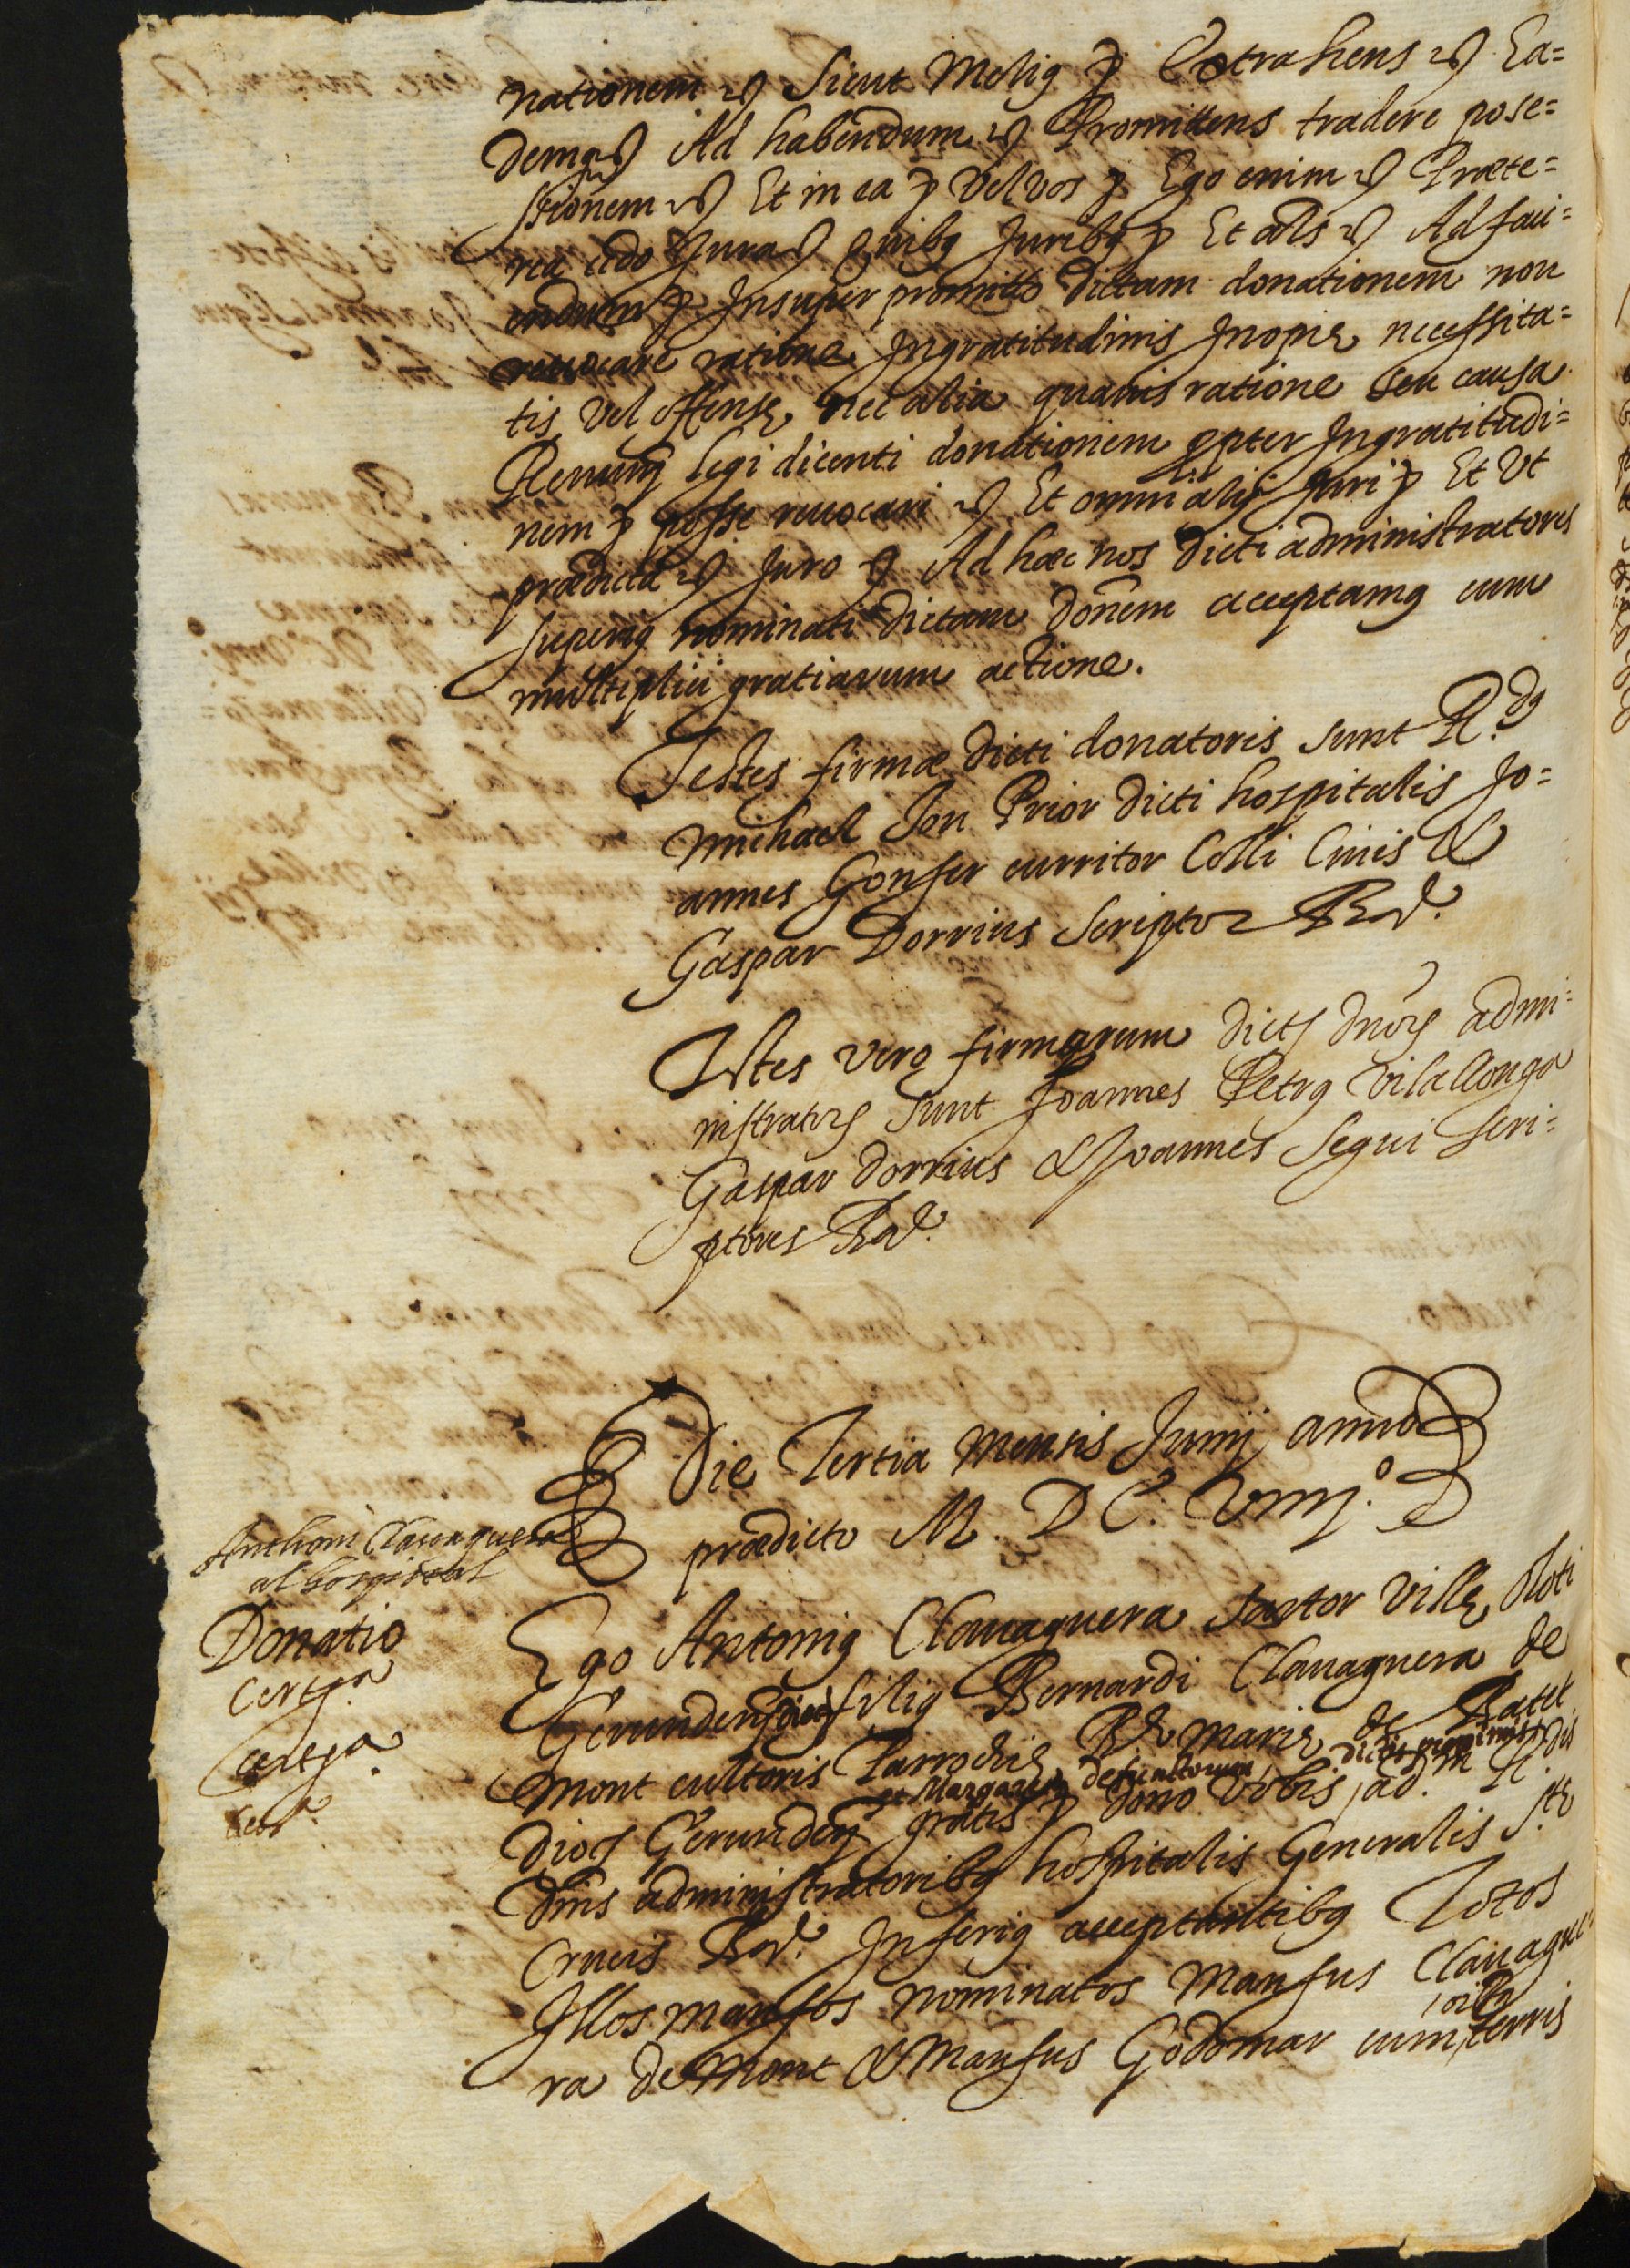 nationem &c Sicut Melig &c Extrahens &c Ea=
demq &c Ad habendum &c Promittens tradere pose=
ssionem &c Et in ea &c Vel vos &c Ego enim &c Præte=
rea cedo Jura &c Quibq Juribq &c Et als &c Ad faci=
endum &c Insuper promitto dictam donationem non
revocare ratione Ingratitudinis Inopię necessita=
tis Vel offensę nec alia quavis ratione seu causa
Renung legi dicenti donationem ꝓpter Ingratitudi=
nem &c posse revocari &c Et omni alij Juri &c Et Vt
prædicta &c Juro &c Ad hæc nos dicti administratores
superig nominati dictam donem acceptamg cum
multiplici gratiarum actione.
Testes firmæ dicti donatoris sunt R.dg
michael Prior dicti hospitalis Jo=
annes Gonser curritor Colli Civis &
Gaspar Dorrius scriptor Bar.
Testes vero firmarum dictꝝ dnorꝝ admi=
nistratorꝝ sunt Joannes Petrg Vilallonga
Gaspar dorrius & Joannes Segui scri=
ptores Bar.
Die Tertia mensis Junij anno
prædicto M. D C. Viiij.º
Anthoni Clavaguera
al hospital
Donatio
Certga
Certga
Ego Antonig Clavaguera sartor Villę Oloti
Gerunden dioc filig Bernardi Clavaguera de
mont cultoris Parrochię Bę Marię de Batet
et Margarę defunctorum dictis
diog Gerunden gratis &c dono Vobis ad.m R.dis
dnis administratoribg hospitalis Generalis S.tę
Crucis Bar. Inferig acceptantibg Totos
Illos mansos nominatos Mansus Clavague=
oibs
ra de Mont & Mansus Godomar cum terris